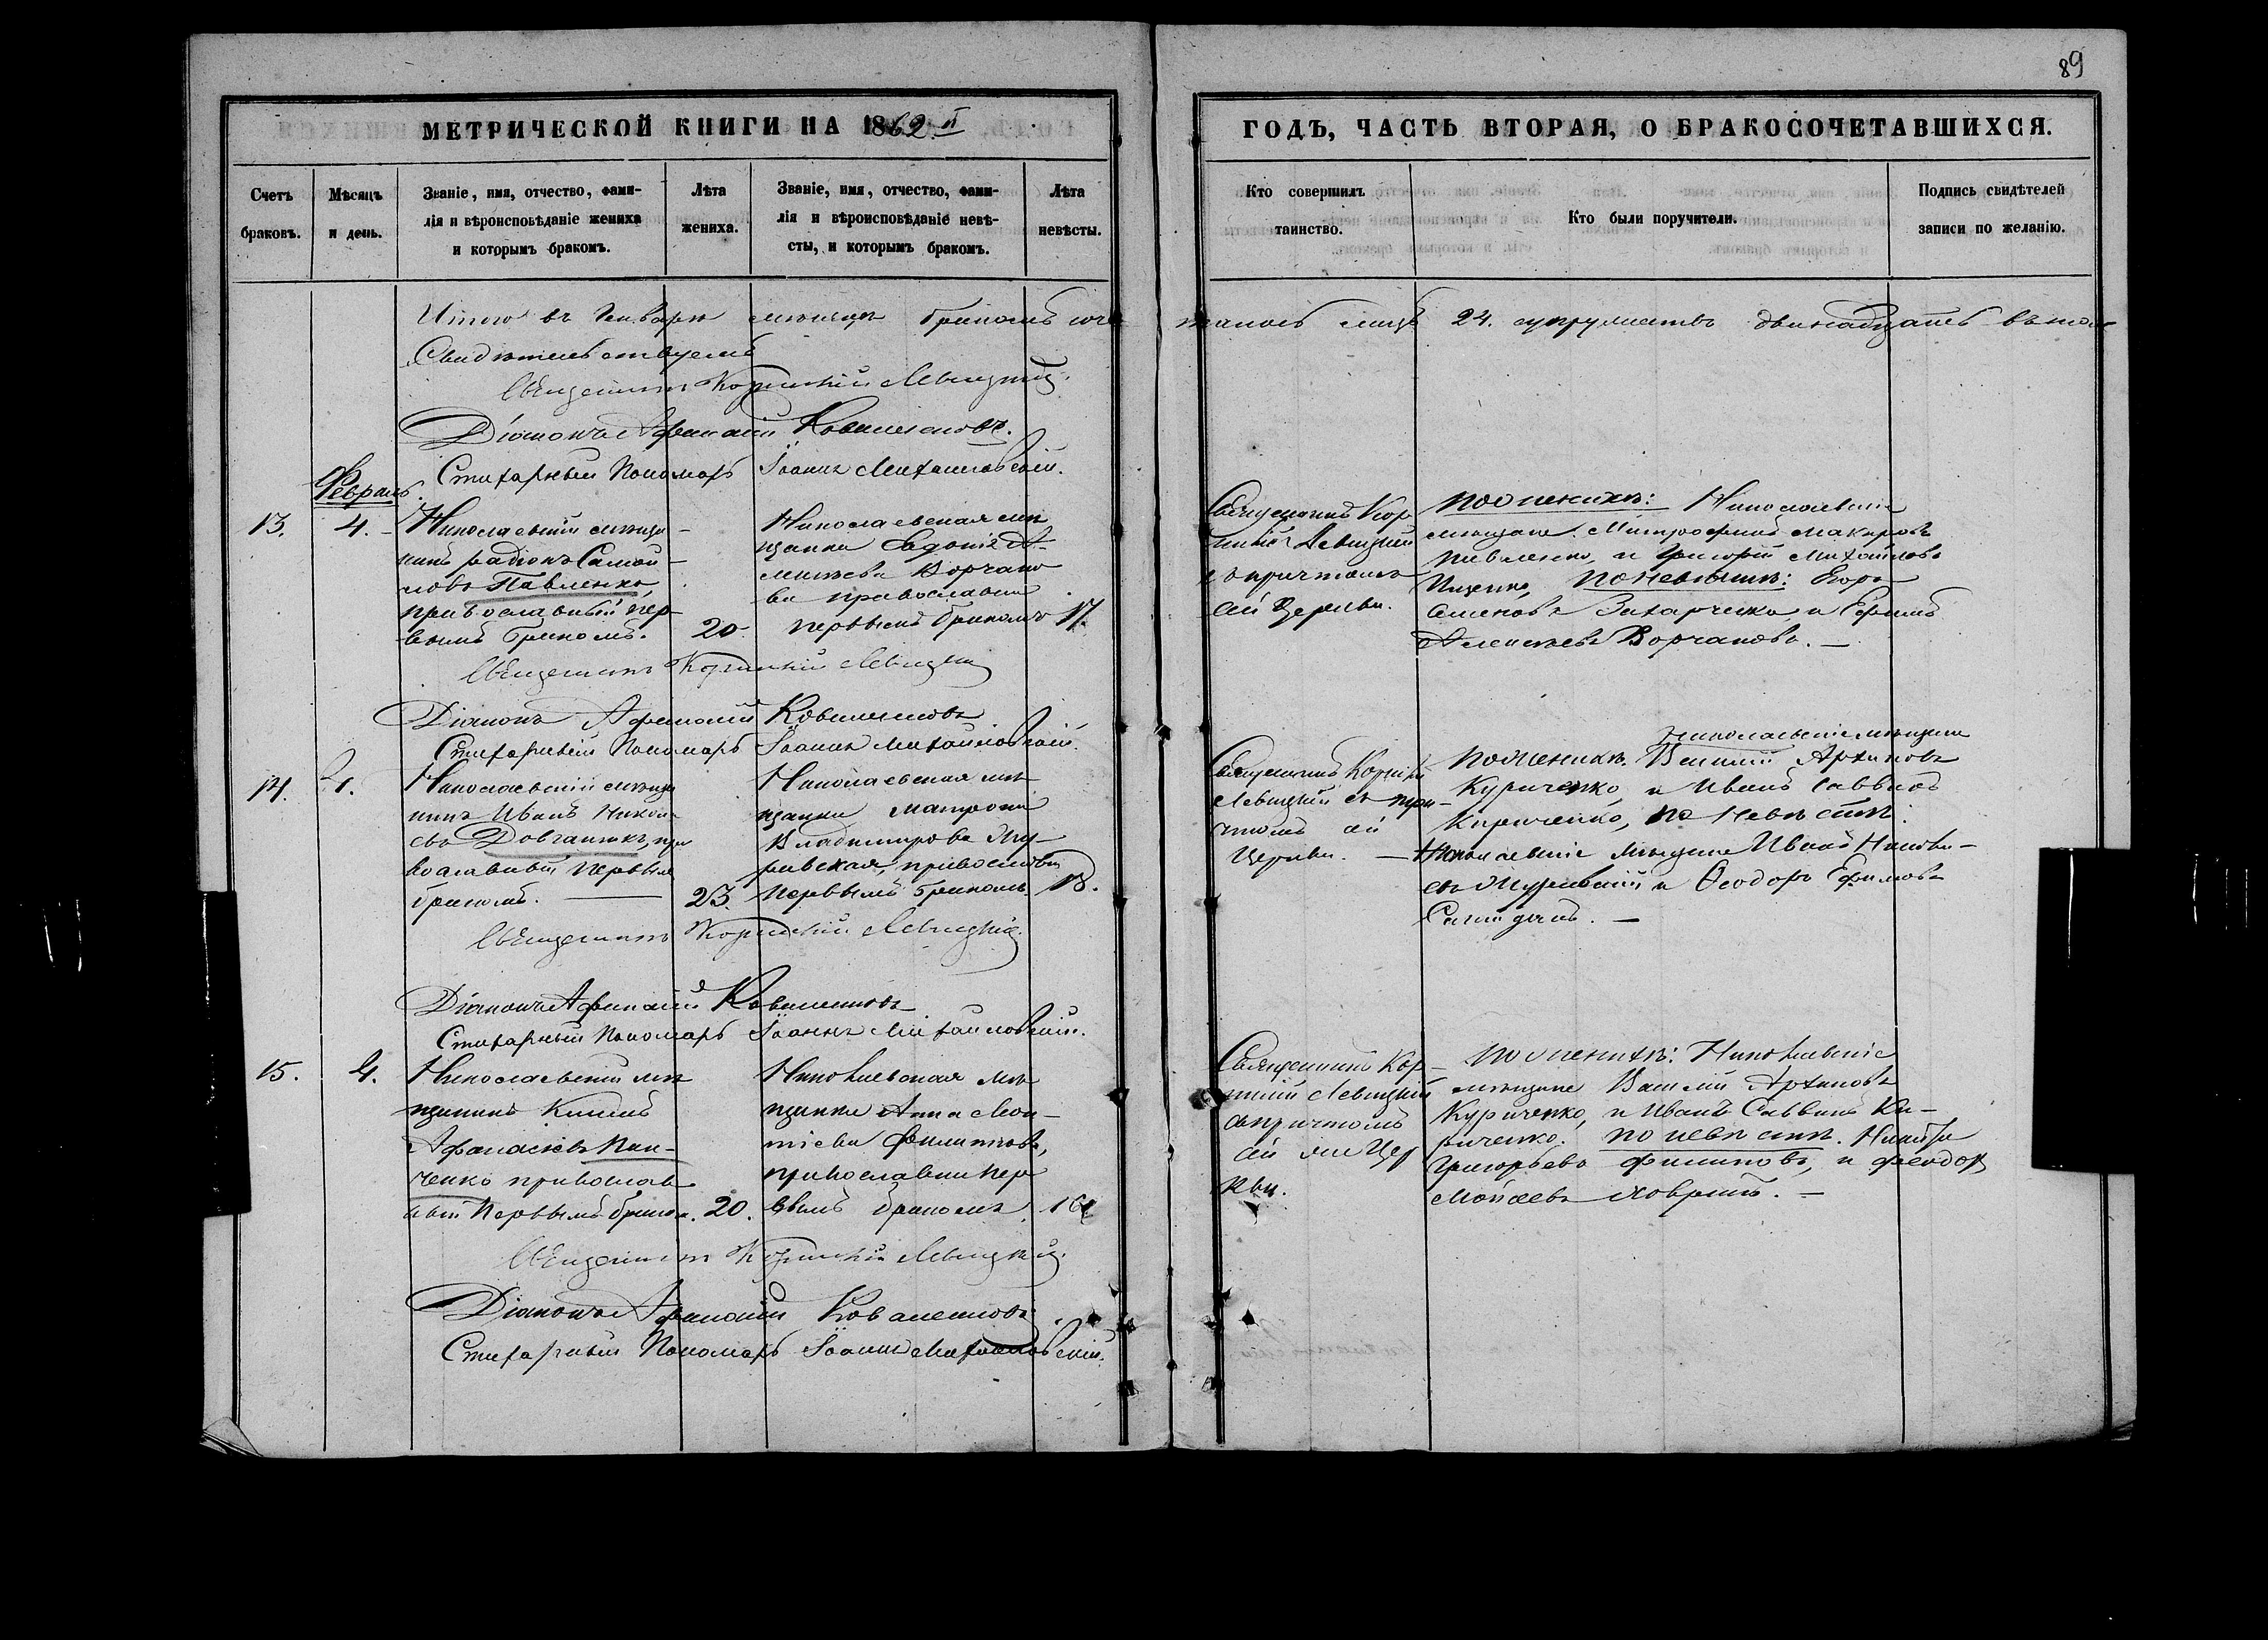 89
МЕТРИЧЕСКОЙ КНИГИ НА 1862 й
ГОДЪ, ЧАСТЬ ВТОРАЯ, О БРАКОСОЧЕТАВШИХСЯ.
Счетъ браковъ.
Мѣсяцъ и день.
Званіе, имя, отчество, фами-
лія и вѣроисповѣданіе жениха
и которымъ бракомъ.
Лѣта жениха.
Званіе, имя, отчество, фами-
лія и вѣроисповѣданіе невѣ-
сты, и которымъ бракомъ.
Лѣта невѣсты.
Кто совершилъ таинство.
Кто были поручители.
Подпись свидѣтелей
записи по желанію.
Итого въ Январѣ мѣсяцѣ бракомъ соче
таиось лицъ 24. супружествъ двѣнадцать
Свидѣтельствуемъ
Священникъ Левицкій.
Діаконъ Афанасій Коваленковъ.
Стихарный Пономарь Іоаннъ Михайловскій.
Февраль.
13.
4.
Николаевскій мѣща
нинъ Радіонъ Самой
ловъ Павленко
православный пер
вымъ бракомъ.
20.
Николаевская мѣ
щанка Евдокія А
лексѣева Ворчано
ва православная
первымъ бракомъ
17.
Священникъ Кор
Левицкій
съ причтомъ
сей Церкви.
По женихѣ: Николаевскіе
мѣщане Митрофанъ Макаровъ
Павленко, и Григорій Михайловъ
Ищенко, По невѣстѣ: Егоръ
Семеновъ Захарченко и Ефимъ
Алексѣевъ Ворчановъ.
Священникъ Левицкій
Діаконъ Афанасій Коваленковъ
Стихарный Пономарь Іоаннъ Михайловскій.
14.
4.
Николаевскій мѣща
нинъ Иванъ Никола
евъ Довганюкъ, пра
вославный первымъ
бракомъ.
23
Николаевская мѣ
щанка Матрона
Владимирова Жу
равская, православная
первымъ бракомъ.
18.
Священникъ
Левицкій съ при
чтомъ сей
Церкви.
Николаевскіе мѣщане
По женихѣ. Василій Архиповъ
Куриченко, и Иванъ Саввинъ
Кириченко, по невѣстѣ:
Николаевскіе мѣщане Иванъ
евъ Журавскій и Ѳеодоръ Ефимовъ
Священникъ Левицкій.
Діаконъ Афанасій Коваленковъ
Стихарный Пономарь Іоаннъ Михайловскій.
15.
4.
Николаевскій мѣ
щанинъ
Афанасіевъ Пан-
ченко православ
ный первымъ браком.
20.
Николаевская мѣ
щанка Анна
Филиппова,
православная пер
вымъ бракомъ
16
Священникъ Кор
Левицкій
съ причтомъ
сей Цер
кви.
По женихѣ: Николаевскіе
мѣщане Василій Архиповъ
Куриченко, и Иванъ Саввинъ Ки-
риченко. по невѣстѣ.
Григорьевъ Филиповъ, и Феодор
Моисеевъ
Священникъ Левицкій.
Діаконъ Афанасій Коваленковъ
Стихарный Пономарь Іоаннъ Михайловскій.